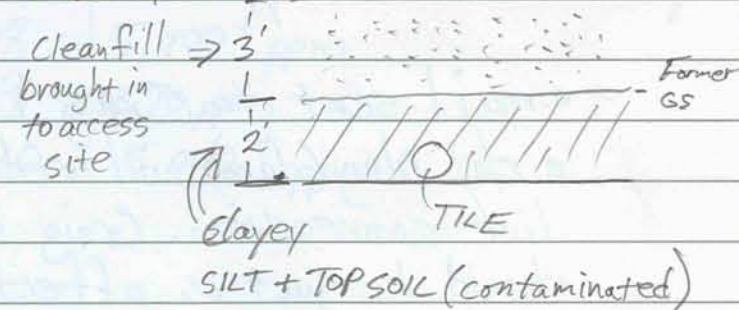 Clean fill → 3'
brought in
to access
site
Former
GS
2'
Clayey
TILE
SILT + TOPSOIL (contaminated)